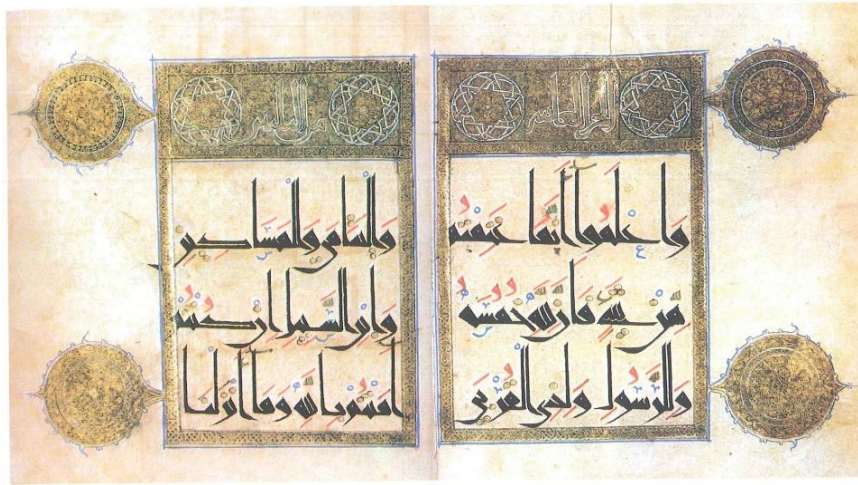 الجزء العاشر
واعلموا أنما غنمتم
من شيء فأن لله خمسه
وللرسول ولذي القربى
من ثلثين
واليتامى والمساكين
وابن السبيل إن كنتم
آمنتم بالله وما أنزلنا